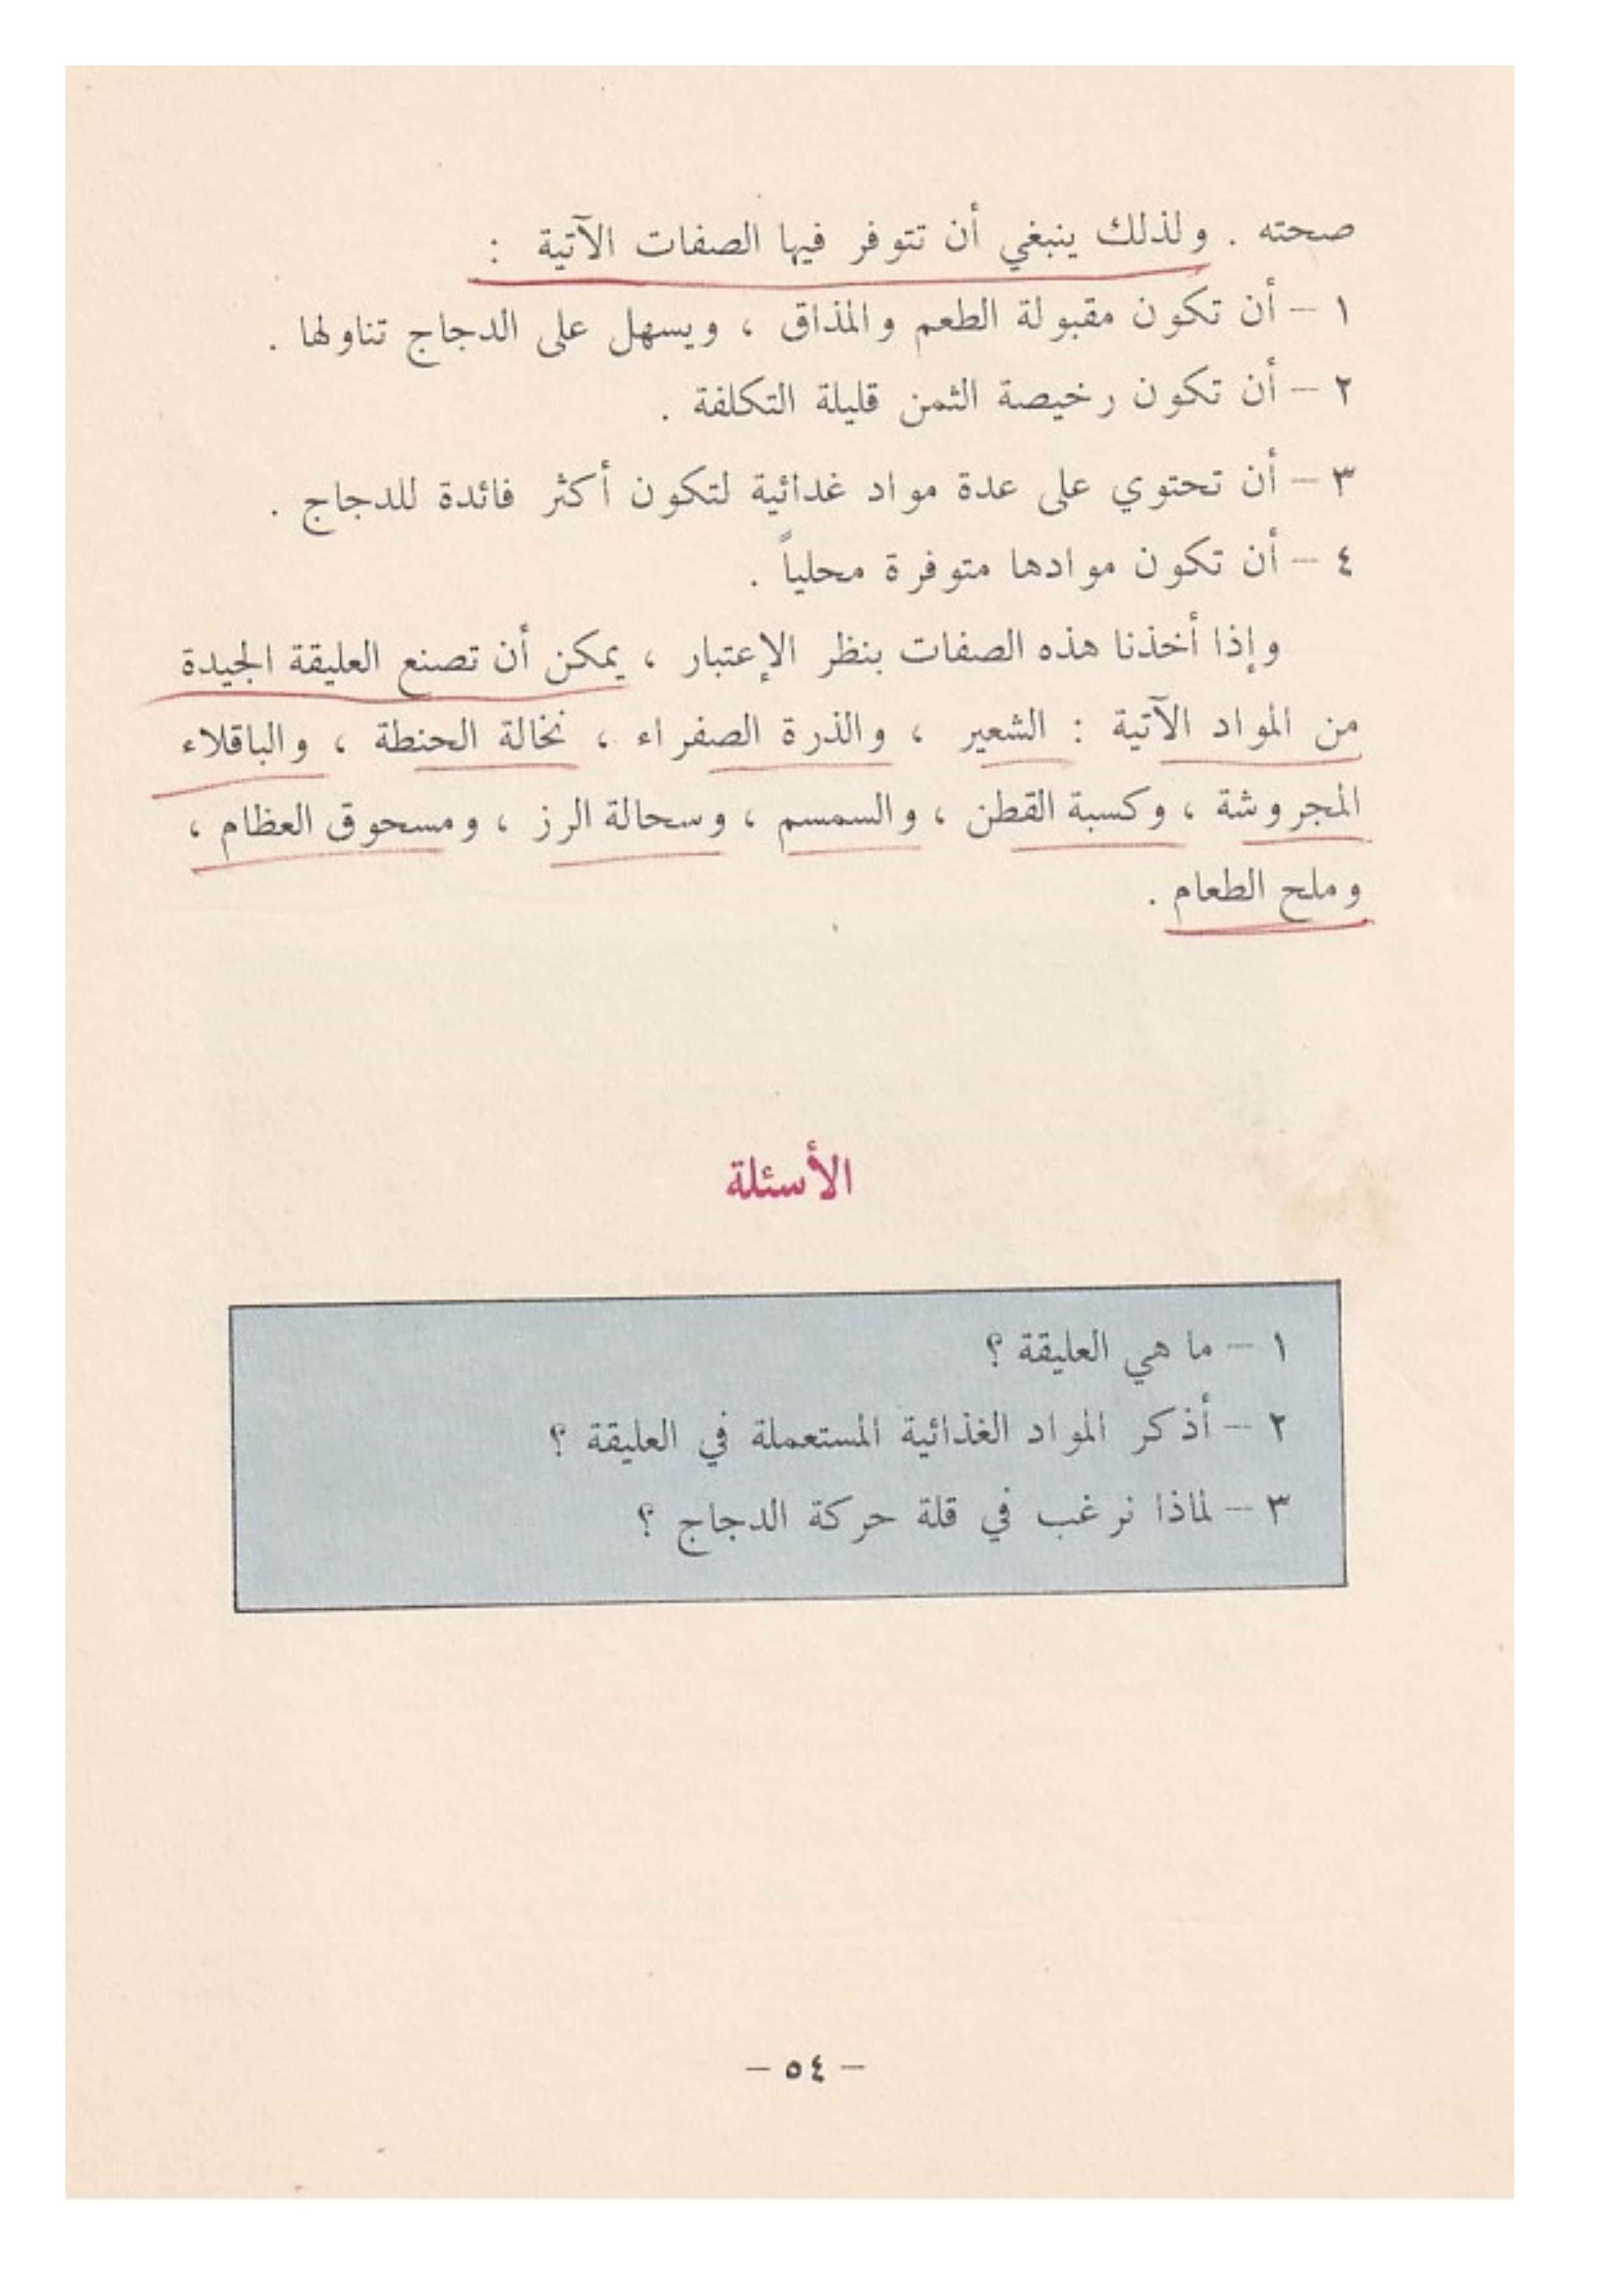 صحته . ولذلك ينبغي أن تتوفر فيها الصفات الآتية :
١ – أن تكون مقبولة الطعم والمذاق ، ويسهل على الدجاج تناولها .
٢ – أن تكون رخيصة الثمن قليلة التكلفة .
٣ – أن تحتوي على عدة مواد غدائية لتكون أكثر فائدة للدجاج .
٤ – أن تكون موادها متوفرة محلياً .
وإذا أخذنا هذه الصفات بنظر الإعتبار ، يمكن أن تصنع العليقة الجيدة
من المواد الآتية : الشعير ، والذرة الصفراء ، نخالة الحنطة ، والباقلاء
المجروشة ، وكسبة القطن ، والسمسم ، وسحالة الرز ، ومسحوق العظام ،
وملح الطعام .
الأسئلة
١ – ما هي العليقة ؟
٢ – أذكر المواد الغذائية المستعملة في العليقة ؟
٣ – لماذا نرغب في قلة حركة الدجاج ؟
– ٥٤ –